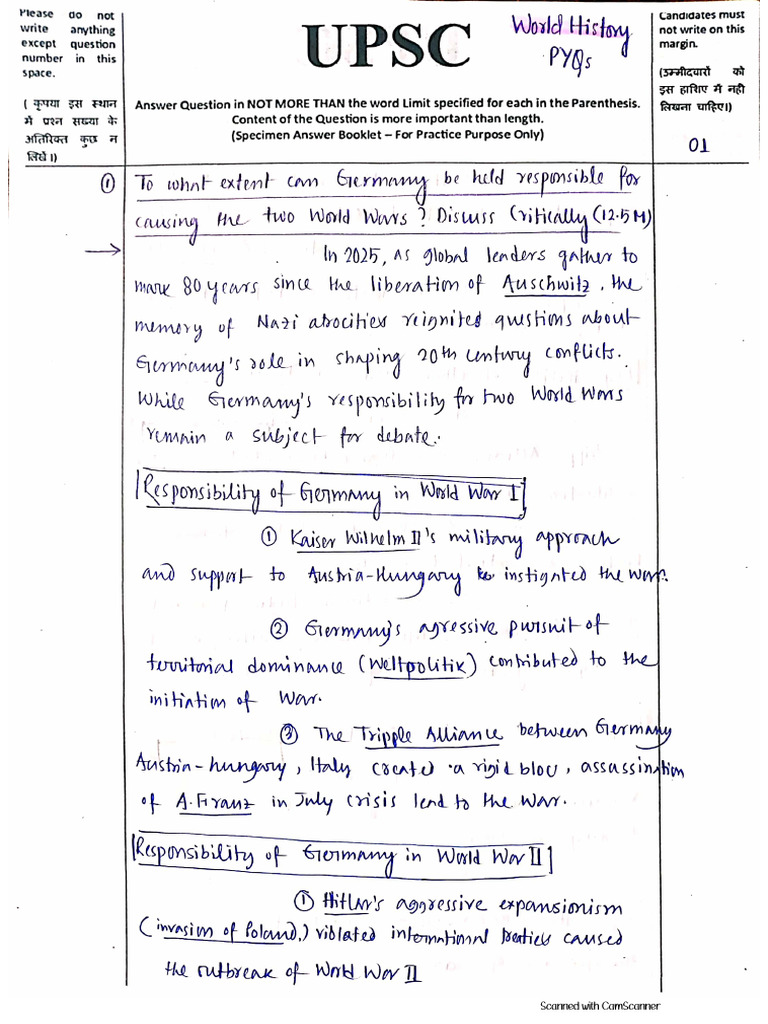 Please do not
write anything
except question
number in this
space.
( कृपया इस स्थान
में प्रश्न संख्या के
अतिरिक्त कुछ न
लिखें।)
UPSC
World History
PYQs
Answer Question in NOT MORE THAN the word Limit specified for each in the Parenthesis.
Content of the Question is more important than length.
(Specimen Answer Booklet – For Practice Purpose Only)
Candidates must
not write on this
margin.
(उम्मीदवारों को
इस हाशिए में नही
लिखना चाहिए।)
01
① To what extent can Germany be held responsible for
causing the two World Wars? Discuss Critically (12.5M)
→ In 2025, as global leaders gather to
mark 80 years since the liberation of Auschwitz, the
memory of Nazi atrocities reignited questions about
Germany's role in shaping 20th century conflicts.
While Germany's responsibility for two World Wars
remain a subject for debate.
Responsibility of Germany in World War I
① Kaiser Wilhelm II's military approach
and support to Austria-Hungary instignted the war.
② Germany's agressive pursuit of
territorial dominance (Weltpolitik) contributed to the
initiation of War.
③ The Tripple Alliance between Germany
Austria-hungary, Italy created a rigid blou, assassination
of A.Firanz in July crisis lead to the War.
Responsibility of Germany in World War II
① Hitlar's aggressive expansionism
(invasion of Poland,) violated international treaties caused
the outbreak of World War II
Scanned with CamScanner